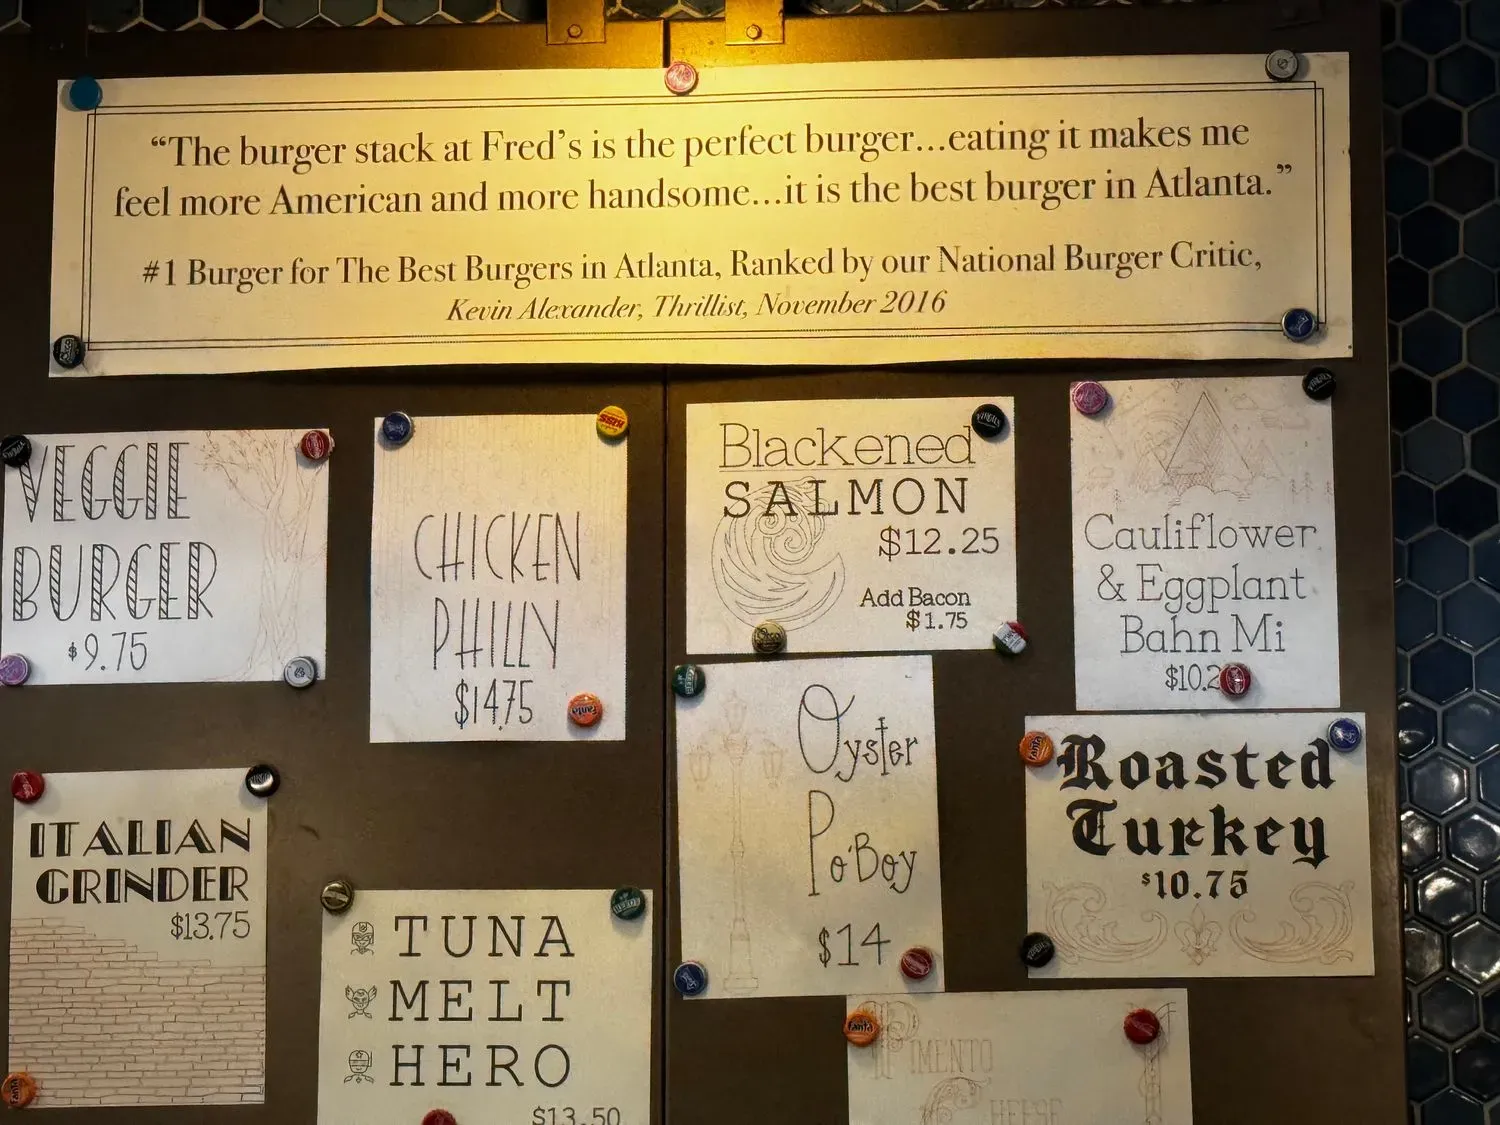 “The burger stack at Fred’s is the perfect burger...eating it makes me
feel more American and more handsome...it is the best burger in Atlanta.”
#1 Burger for The Best Burgers in Atlanta, Ranked by our National Burger Critic,
Kevin Alexander, Thrillist, November 2016
VEGGIE
BURGER
$9.75
CHICKEN
PHILLY
$14.75
Blackened
SALMON
$12.25
Add Bacon
$1.75
Cauliflower
& Eggplant
Bahn Mi
$10.2
ITALIAN
GRINDER
$13.75
TUNA
MELT
HERO
$13.50
Oyster
Po'Boy
$14
Roasted
Turkey
$10.75
PIMENTO
CHEESE
Fanta
Fanta
Fanta
Fanta